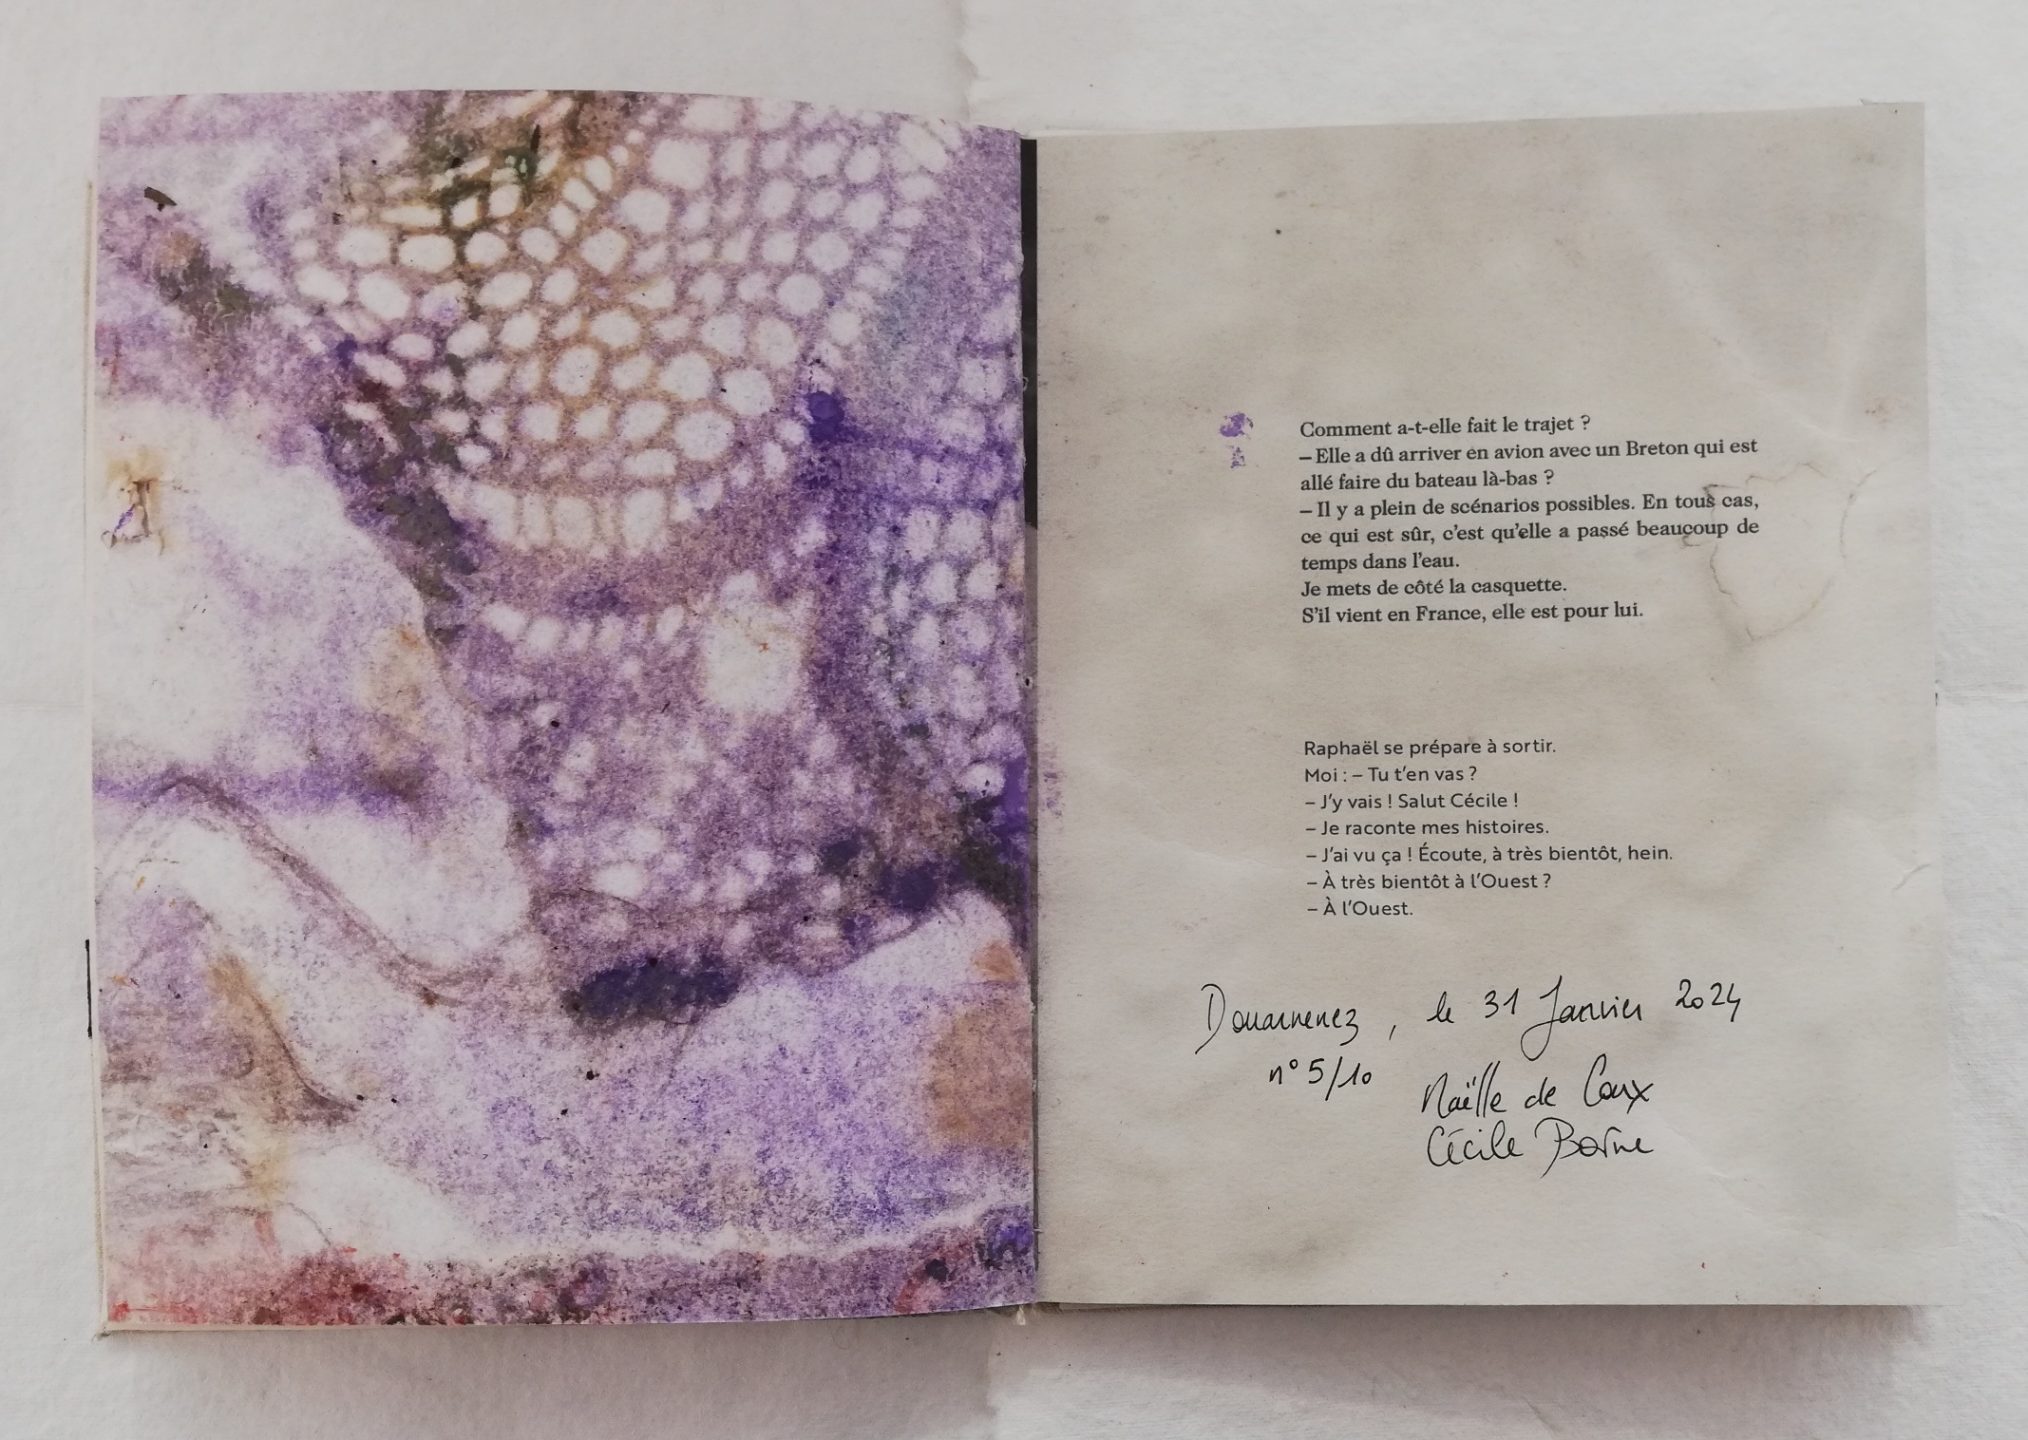 Comment a-t-elle fait le trajet ?
– Elle a dû arriver en avion avec un Breton qui est
allé faire du bateau là-bas ?
– Il y a plein de scénarios possibles. En tous cas,
ce qui est sûr, c’est qu’elle a passé beaucoup de
temps dans l’eau.
Je mets de côté la casquette.
S’il vient en France, elle est pour lui.
Raphaël se prépare à sortir.
Moi : – Tu t’en vas ?
– J’y vais ! Salut Cécile !
– Je raconte mes histoires.
– J’ai vu ça ! Écoute, à très bientôt, hein.
– À très bientôt à l’Ouest ?
– À l’Ouest.
Douarnenez, le 31 Janvier 2024
n° 5/10
Naëlle de Caux
Cécile Borne